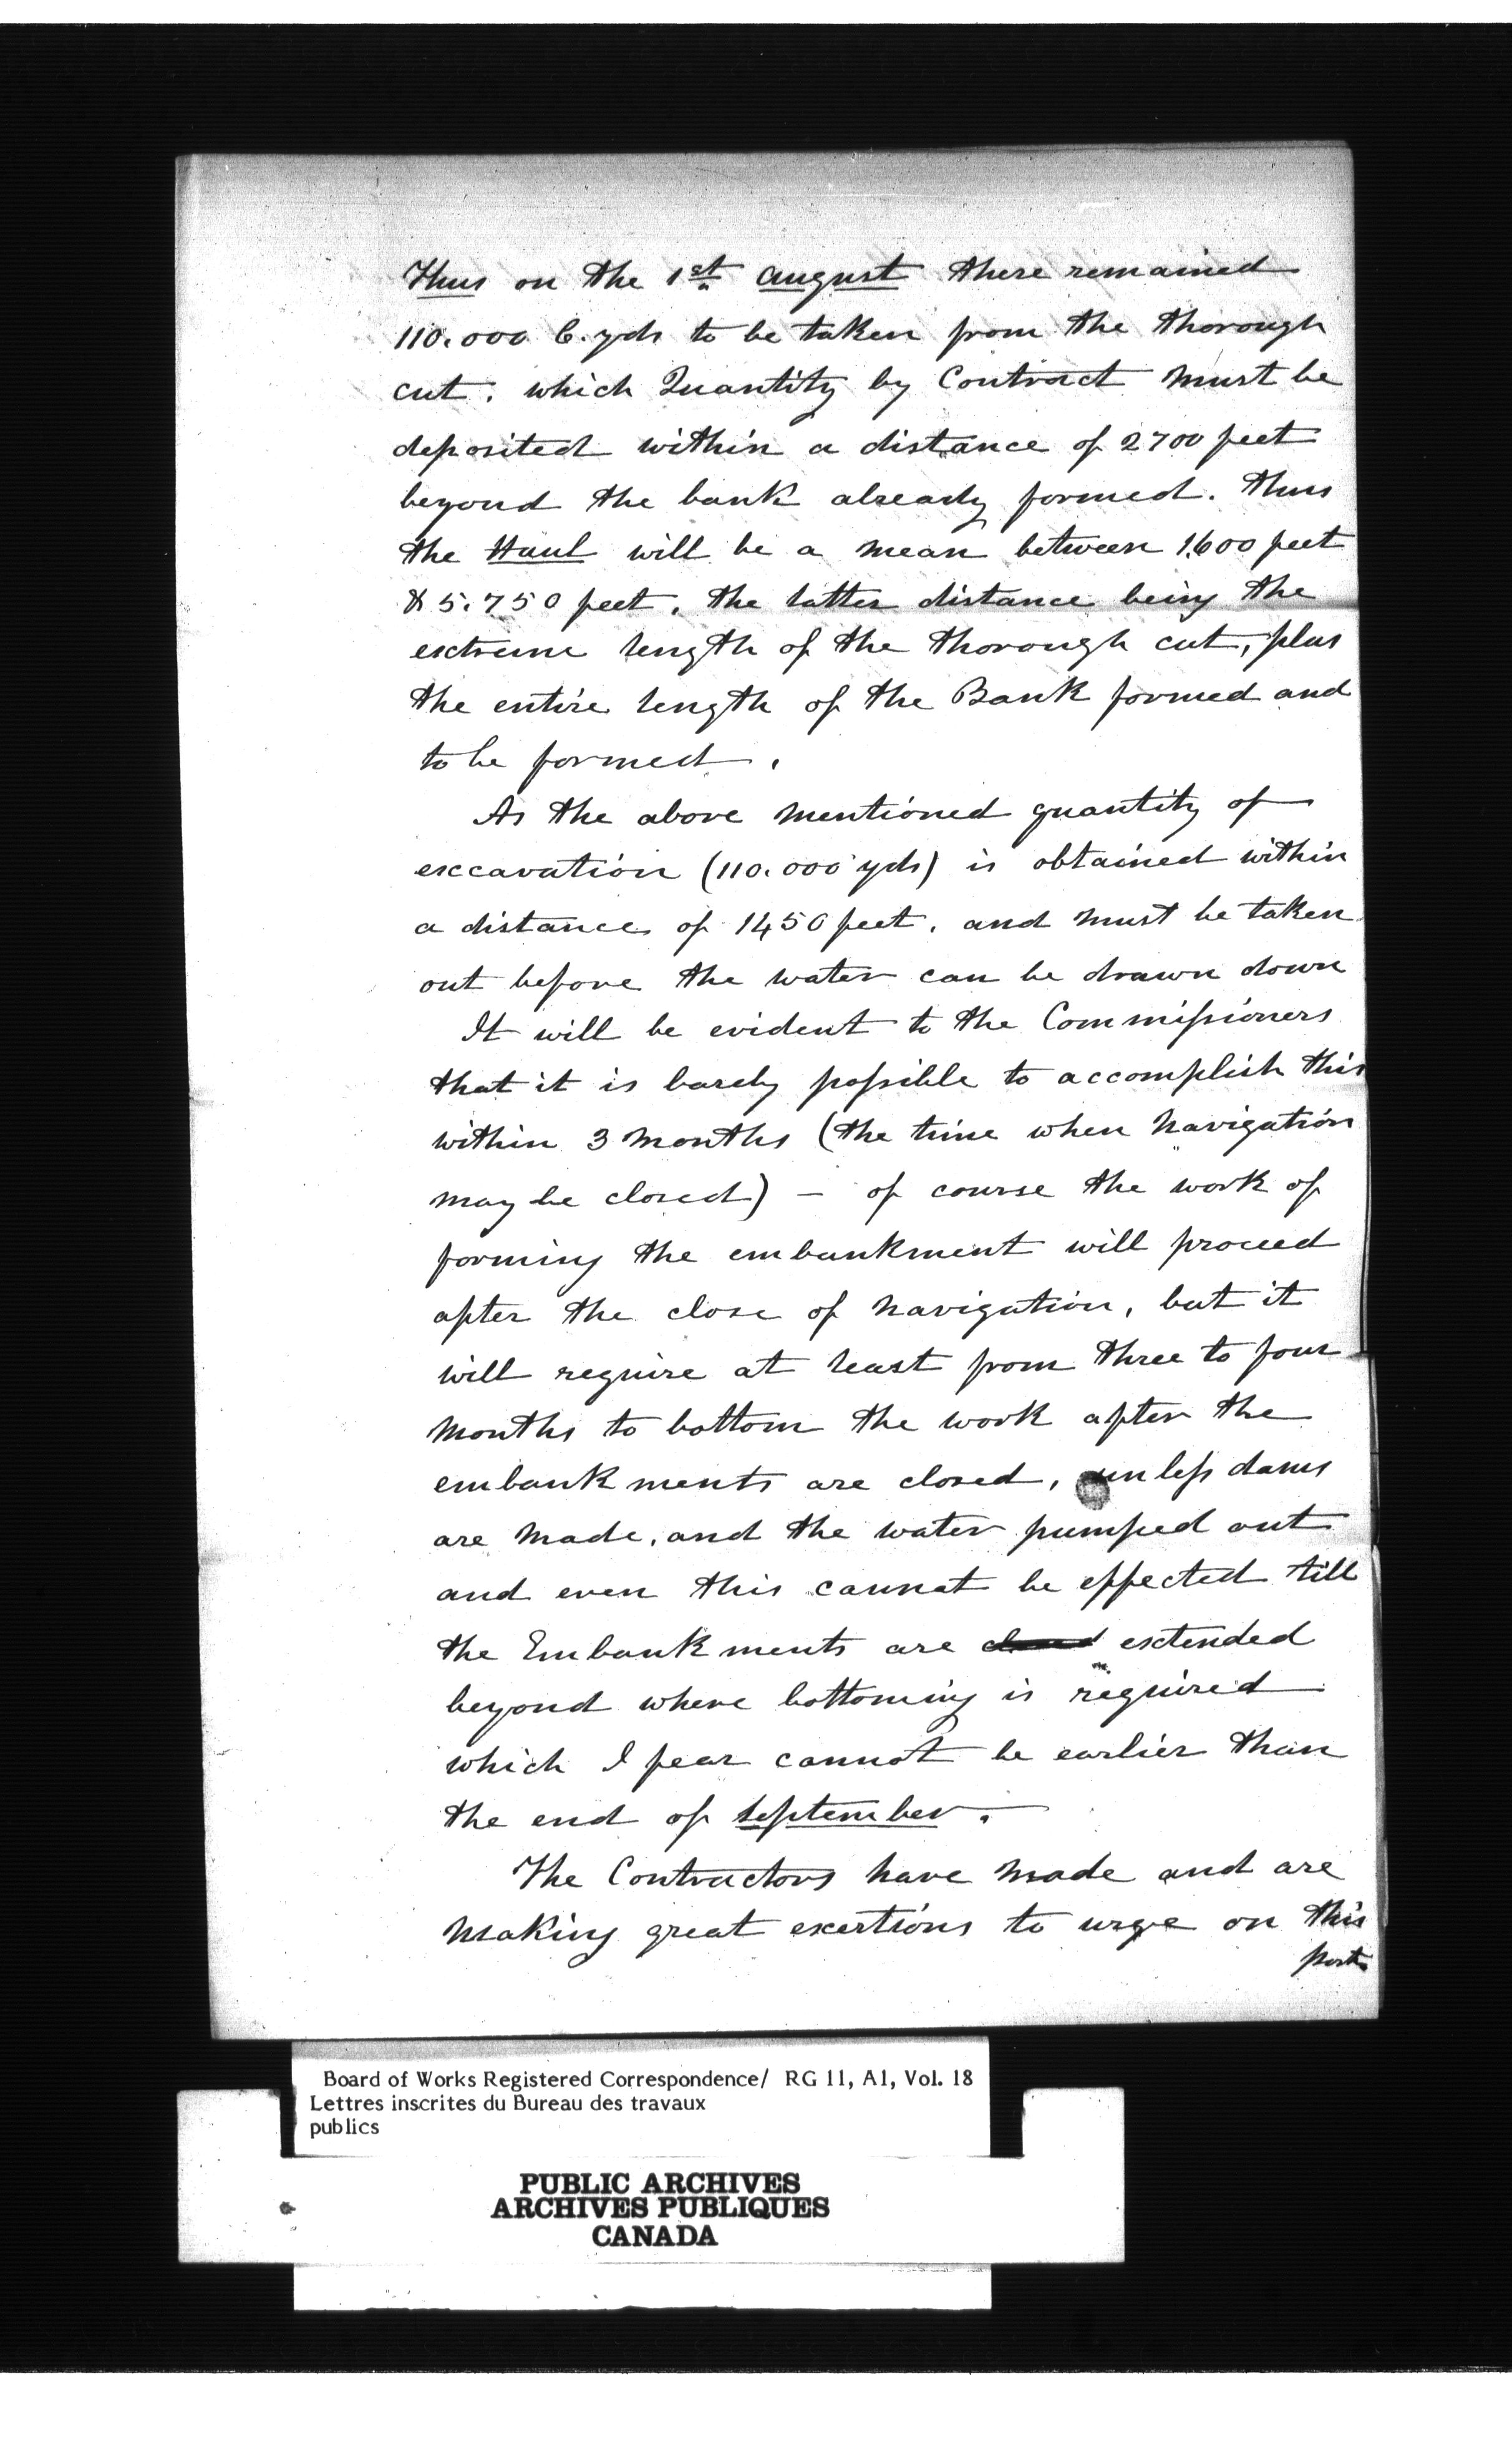 Thus on the 1st august there remained
110.000 C. yds to be taken from the thorough
cut. which Quantity by Contract must be
deposited within a distance of 2700 feet
beyond the bank already formed. thus
the Haul will be a mean between 1600 feet
& 5.750 feet. the latter distance being the
extreme length of the thorough cut, plus
the entire length of the Bank formed and
to be formed.
As the above mentioned quantity of
excavation (110.000 yds) is obtained within
a distance of 1450 feet. and must be taken
out before the water can be drawn down
It will be evident to the Commissioners
that it is barely possible to accomplish this
within 3 months (the time when navigation
may be closed) - of course the work of
forming the embankment will proceed
after the close of navigation, but it
will require at least from three to four
months to bottom the work after the
embankments are closed, unless dams
are made, and the water pumped out
and even this cannot be effected till
the Embankments are closed extended
beyond where bottoming is required
which I fear cannot be earlier than
the end of September.
The Contractors have made and are
making great exertions to urge on this
part
Board of Works Registered Correspondence/ RG 11, A1, Vol. 18
Lettres inscrites du Bureau des travaux
publics
PUBLIC ARCHIVES
ARCHIVES PUBLIQUES
CANADA